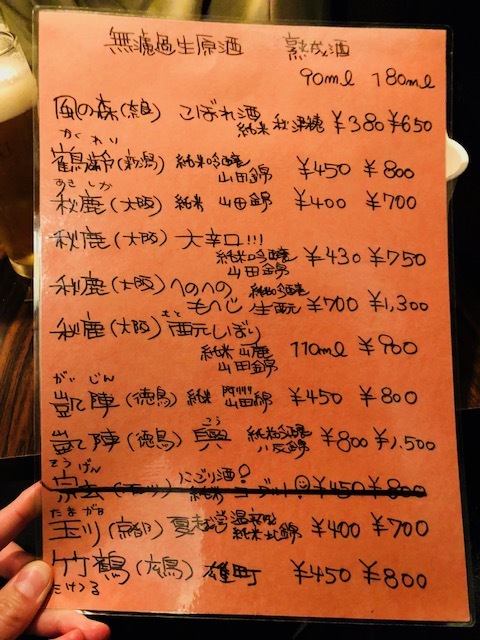 無濾過生原酒 熟成酒
90ml 180ml
風の森(奈良) こぼれ酒
純米 秋津穂 ¥380 ¥650
かくれい
鶴齢(新潟) 純米吟醸 ¥450 ¥800
山田錦
あきしか
秋鹿(大阪) 純米 山田錦 ¥400 ¥700
秋鹿(大阪) 大辛口!!!
純米吟醸 ¥430 ¥750
山田錦
秋鹿(大阪) へのへの 純米吟醸
もへじ 生酛 ¥700 ¥1,300
もと
秋鹿(大阪) 酛しぼり
純米 山廃 110ml ¥900
山田錦
がいじん
凱陣(徳島) 純米 阿州 ¥450 ¥800
山田錦
こう
凱陣(徳島) 興 純米吟醸 ¥800 ¥1,500
八反錦
そうげん にごり酒
宗玄 純米 ¥450 ¥800
たまがわ
玉川(京都) 夏越 純米 ¥400 ¥700
竹鶴(広島) 雄町 ¥450 ¥800
たけつる